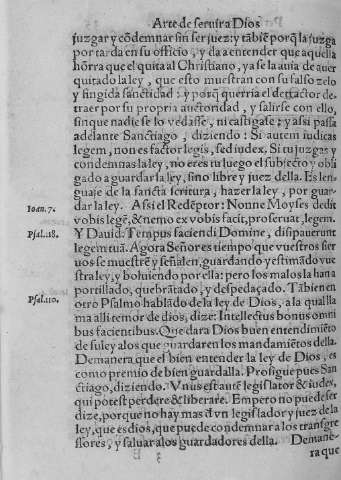 Arte de seruir a Dios
juzgar y cõdemnar sin ser juez: y tãbiẽ porq̃ la juzga
por tarda en su officio, y da a entender que aquella
hõrra que el quita al Christiano, ya se la auia de auer
quitado la ley, que esto muestran con su falso zelo
y fingida sanctidad: y porq̃ querria el detractor de-
traer por su propria auctoridad, y salirse con ello,
sin que nadie se lo vedasse, ni castigase: y assi passa
adelante Sanctiago, diziendo: Si autem iudicas
legem, non es factor legis, sed iudex. Si tu juzgas y
condemnas la ley, no eres tu luego el subiecto y obli
gado a guardar la ley, sino libre y juez della. Es len-
guaje de la sancta scritura, hazer la ley, por guar-
Ioan. 7.
dar la ley. Assi el Redẽptor: Nonne Moyses dedit
vobis legẽ, & nemo ex vobis facit, pro seruat, legem.
Psal. 118.
Y Dauid. Tempus faciendi Domine, dissipauerunt
legem tuã. Agora Señores tiempo que vuestros sier
uos se muestrẽ y señalen, guardando y estimãdo vue
stra ley, y boluiendo por ella: pero los malos la han a
portillado, quebrãtado, y despedaçado. Tãbien en
Psal. 110.
otro Psalmo hablãdo de la ley de Dios, a la qual lla
ma alli temor de dios, dize: Intellectus bonus omni
bus facientibus. Que dara Dios buen entendimiẽto
de su ley a los que guardaren los mandamiẽtos della.
Demanera que el bien entender la ley de Dios, es
como premio de bien guardalla. Prosigue pues San
ctiago, diziendo. Vnus est autẽ legislator & iudex,
qui potest perdere & liberare. Empero no puede ser
dize, porque no hay mas d̃ vn legislador y juez de la
ley, que es dios, que puede condemnar a los transgre
ssores, y saluar a los guardadores della. Demane-
ra que